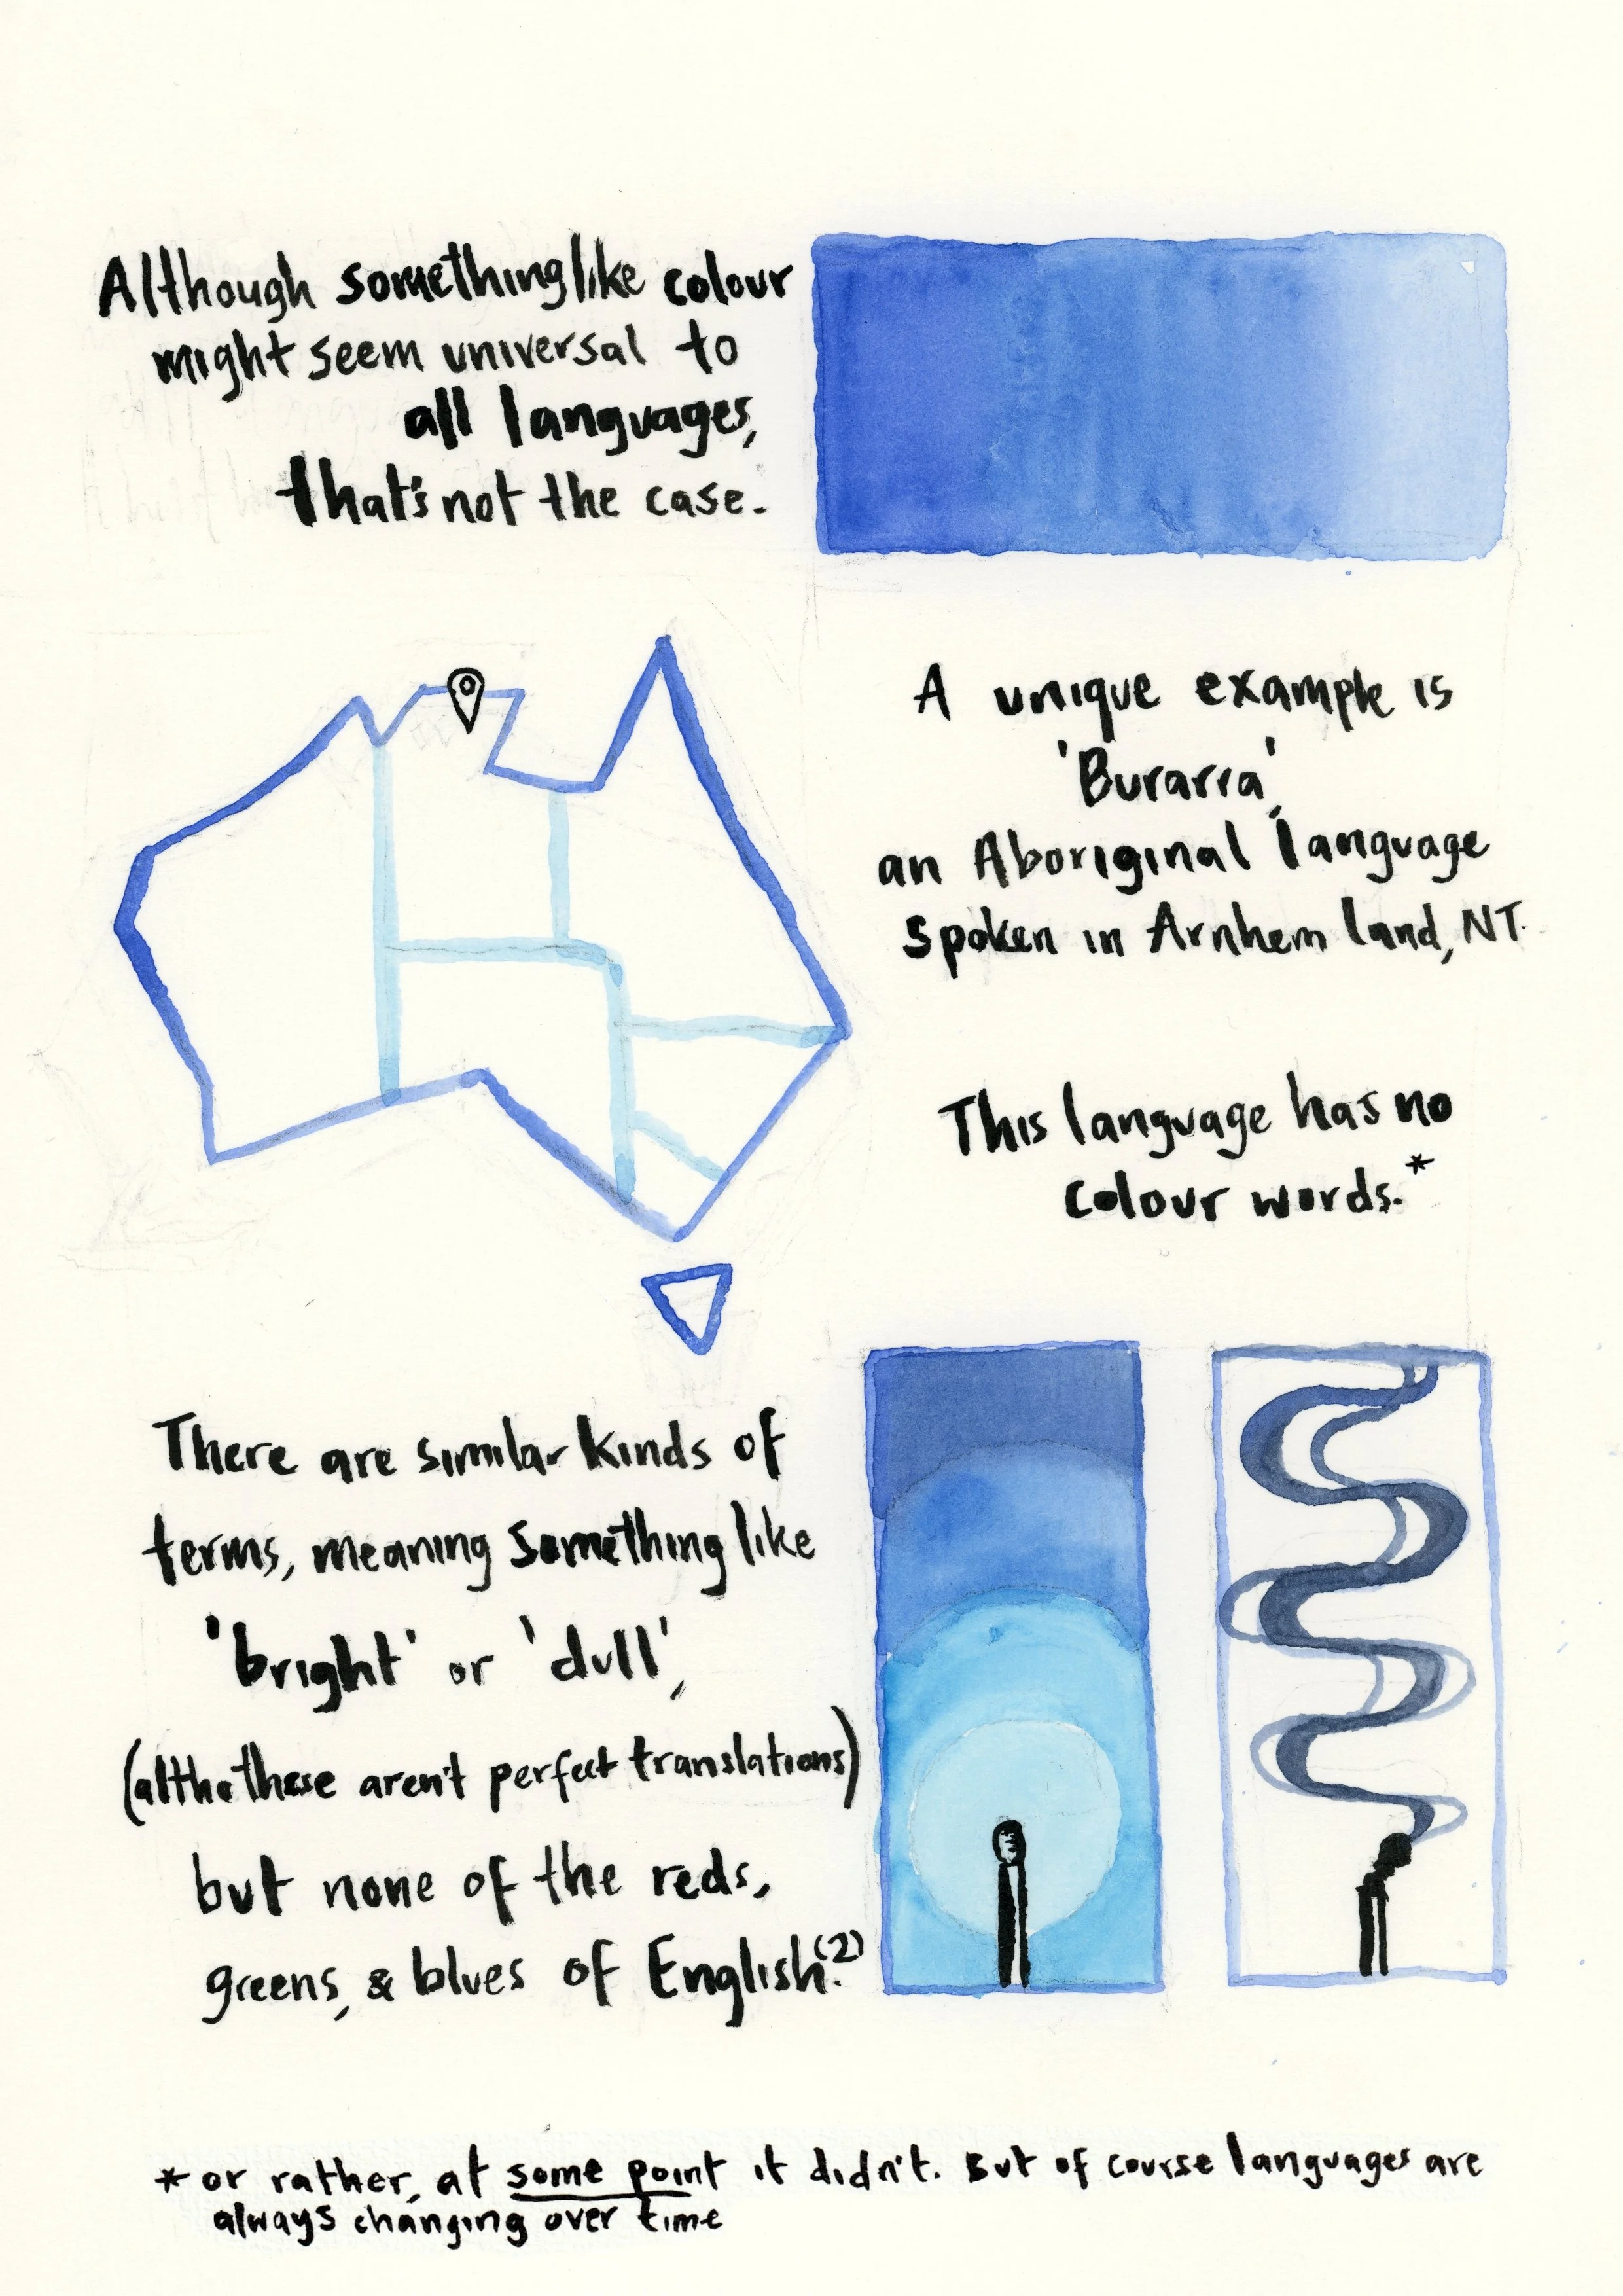 Although something like colour
might seem universal to
all languages,
that's not the case.
A unique example is
'Burarra',
an Aboriginal language
spoken in Arnhem land, NT.
This language has no
colour words.*
There are similar kinds of
terms, meaning something like
'bright' or 'dull',
(altho these aren't perfect translations)
but none of the reds,
greens, & blues of English.(2)
* or rather, at some point it didn't. But of course languages are
always changing over time